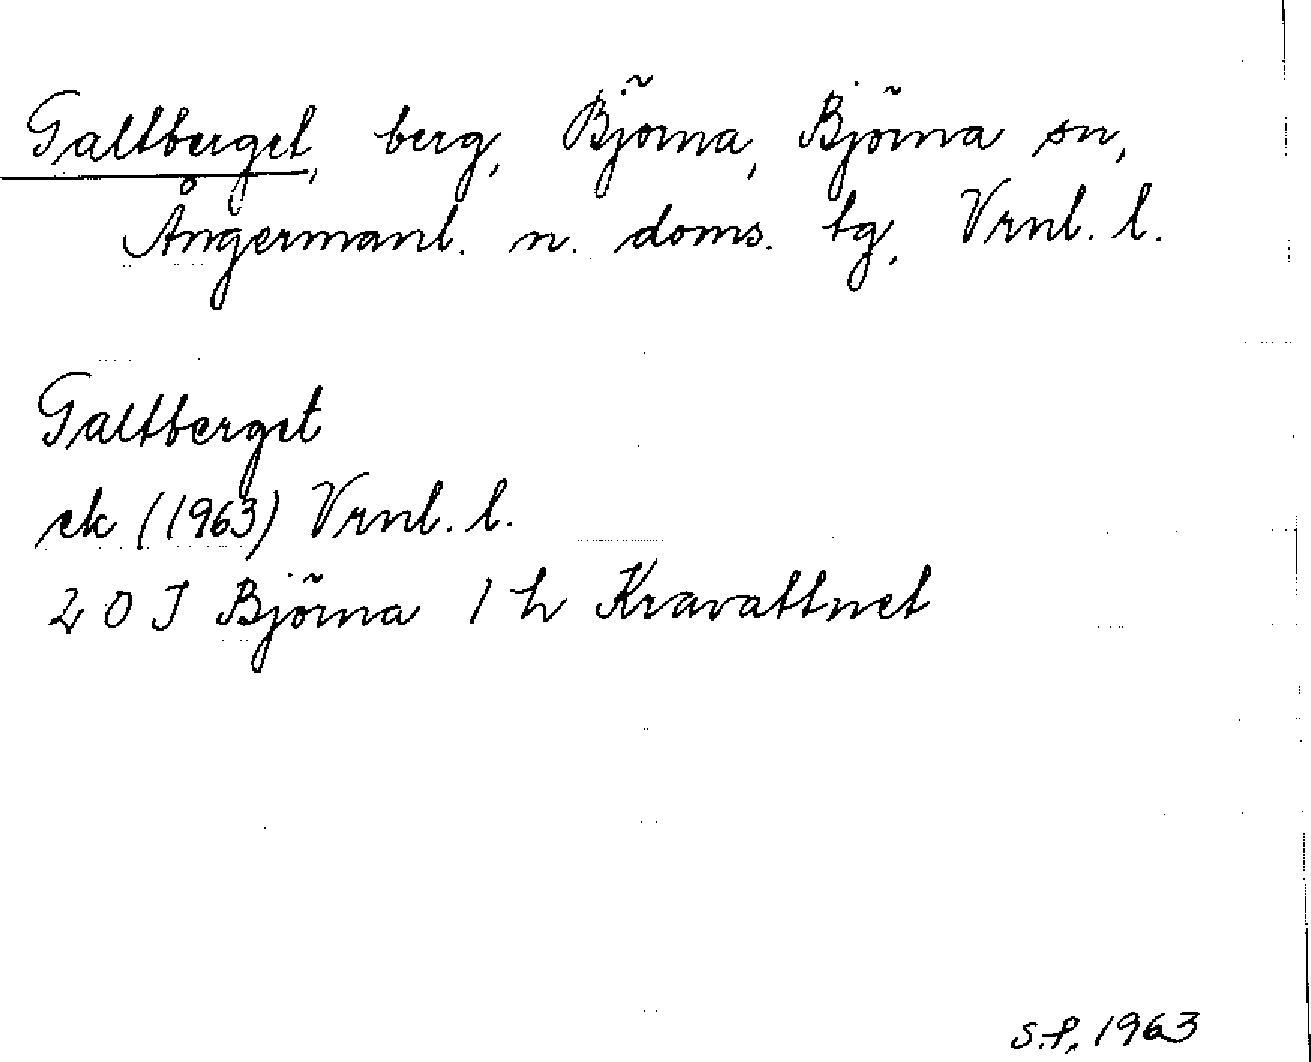 Galtberget, berg, Björna, Björna sn,
Ångermanl. n. doms. tg, Vrnl. l.
Galtberget
ek (1963) Vrnl. l.
20 J Björna 1 h Kravattnet
S.f, 1963